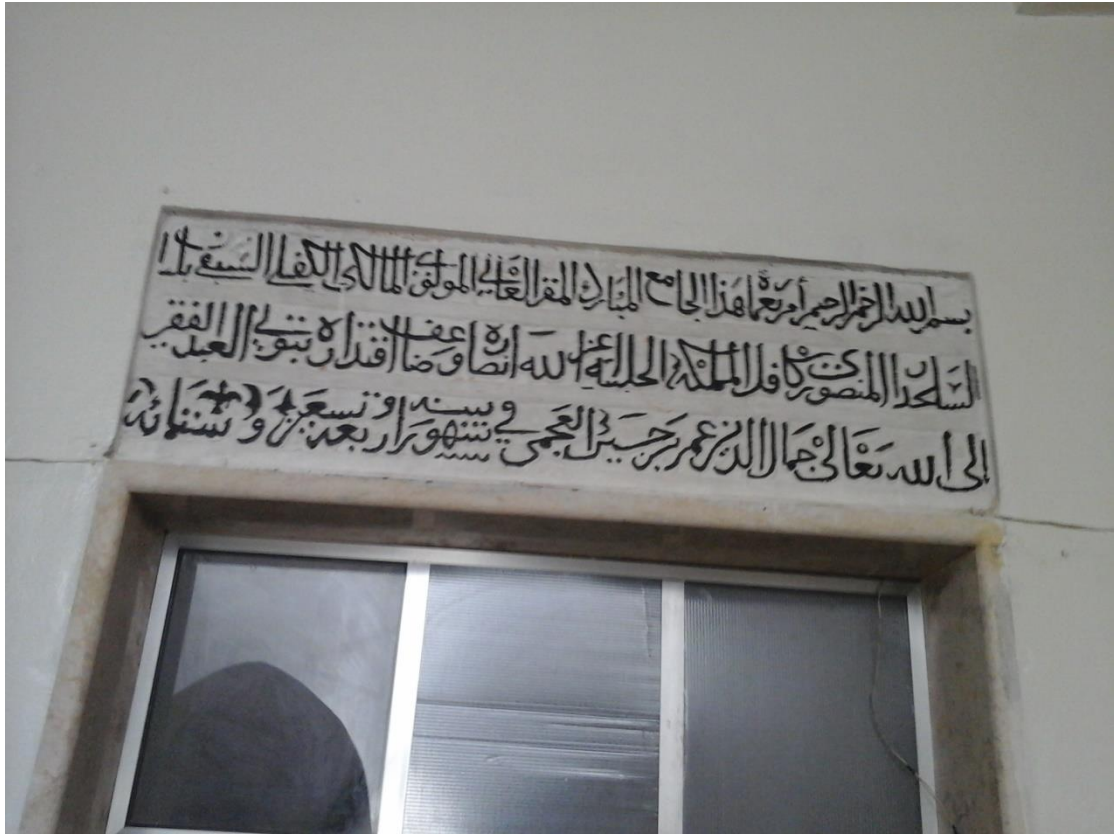 بسم الله الرحمن الرحيم أمر بعمارة هذا الجامع المبارك المقر العالي المولوي المالكي الكفيلي السيفي
السلحدار المنصوري كافل المملكة الحلبية أعز الله أنصاره وضاعف اقتداره بتولي العبد الفقير
إلى الله تعالى جمال الدين عمر العجمي في شهور سنة أربعة وتسعين وستمائة